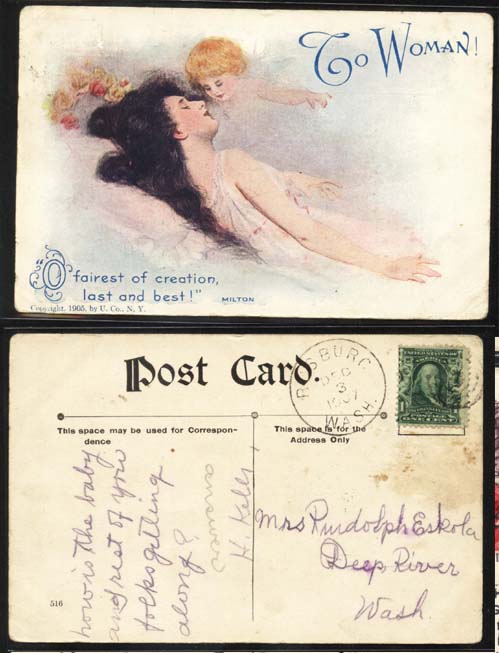 To WOMAN!
"O fairest of creation,
last and best!" MILTON
Copyright, 1905, by U. Co., N. Y.
Post Card.
ROSBURG
DEC
3
1907
WASH.
UNITED STATES
1
ONE CENT
This space may be used for Correspon-
dence
This space is for the
Address Only
how is the baby
and rest of you
folks getting
along?
H. Kelly
Mrs Rudolph Eskola
Deep River
Wash.
516